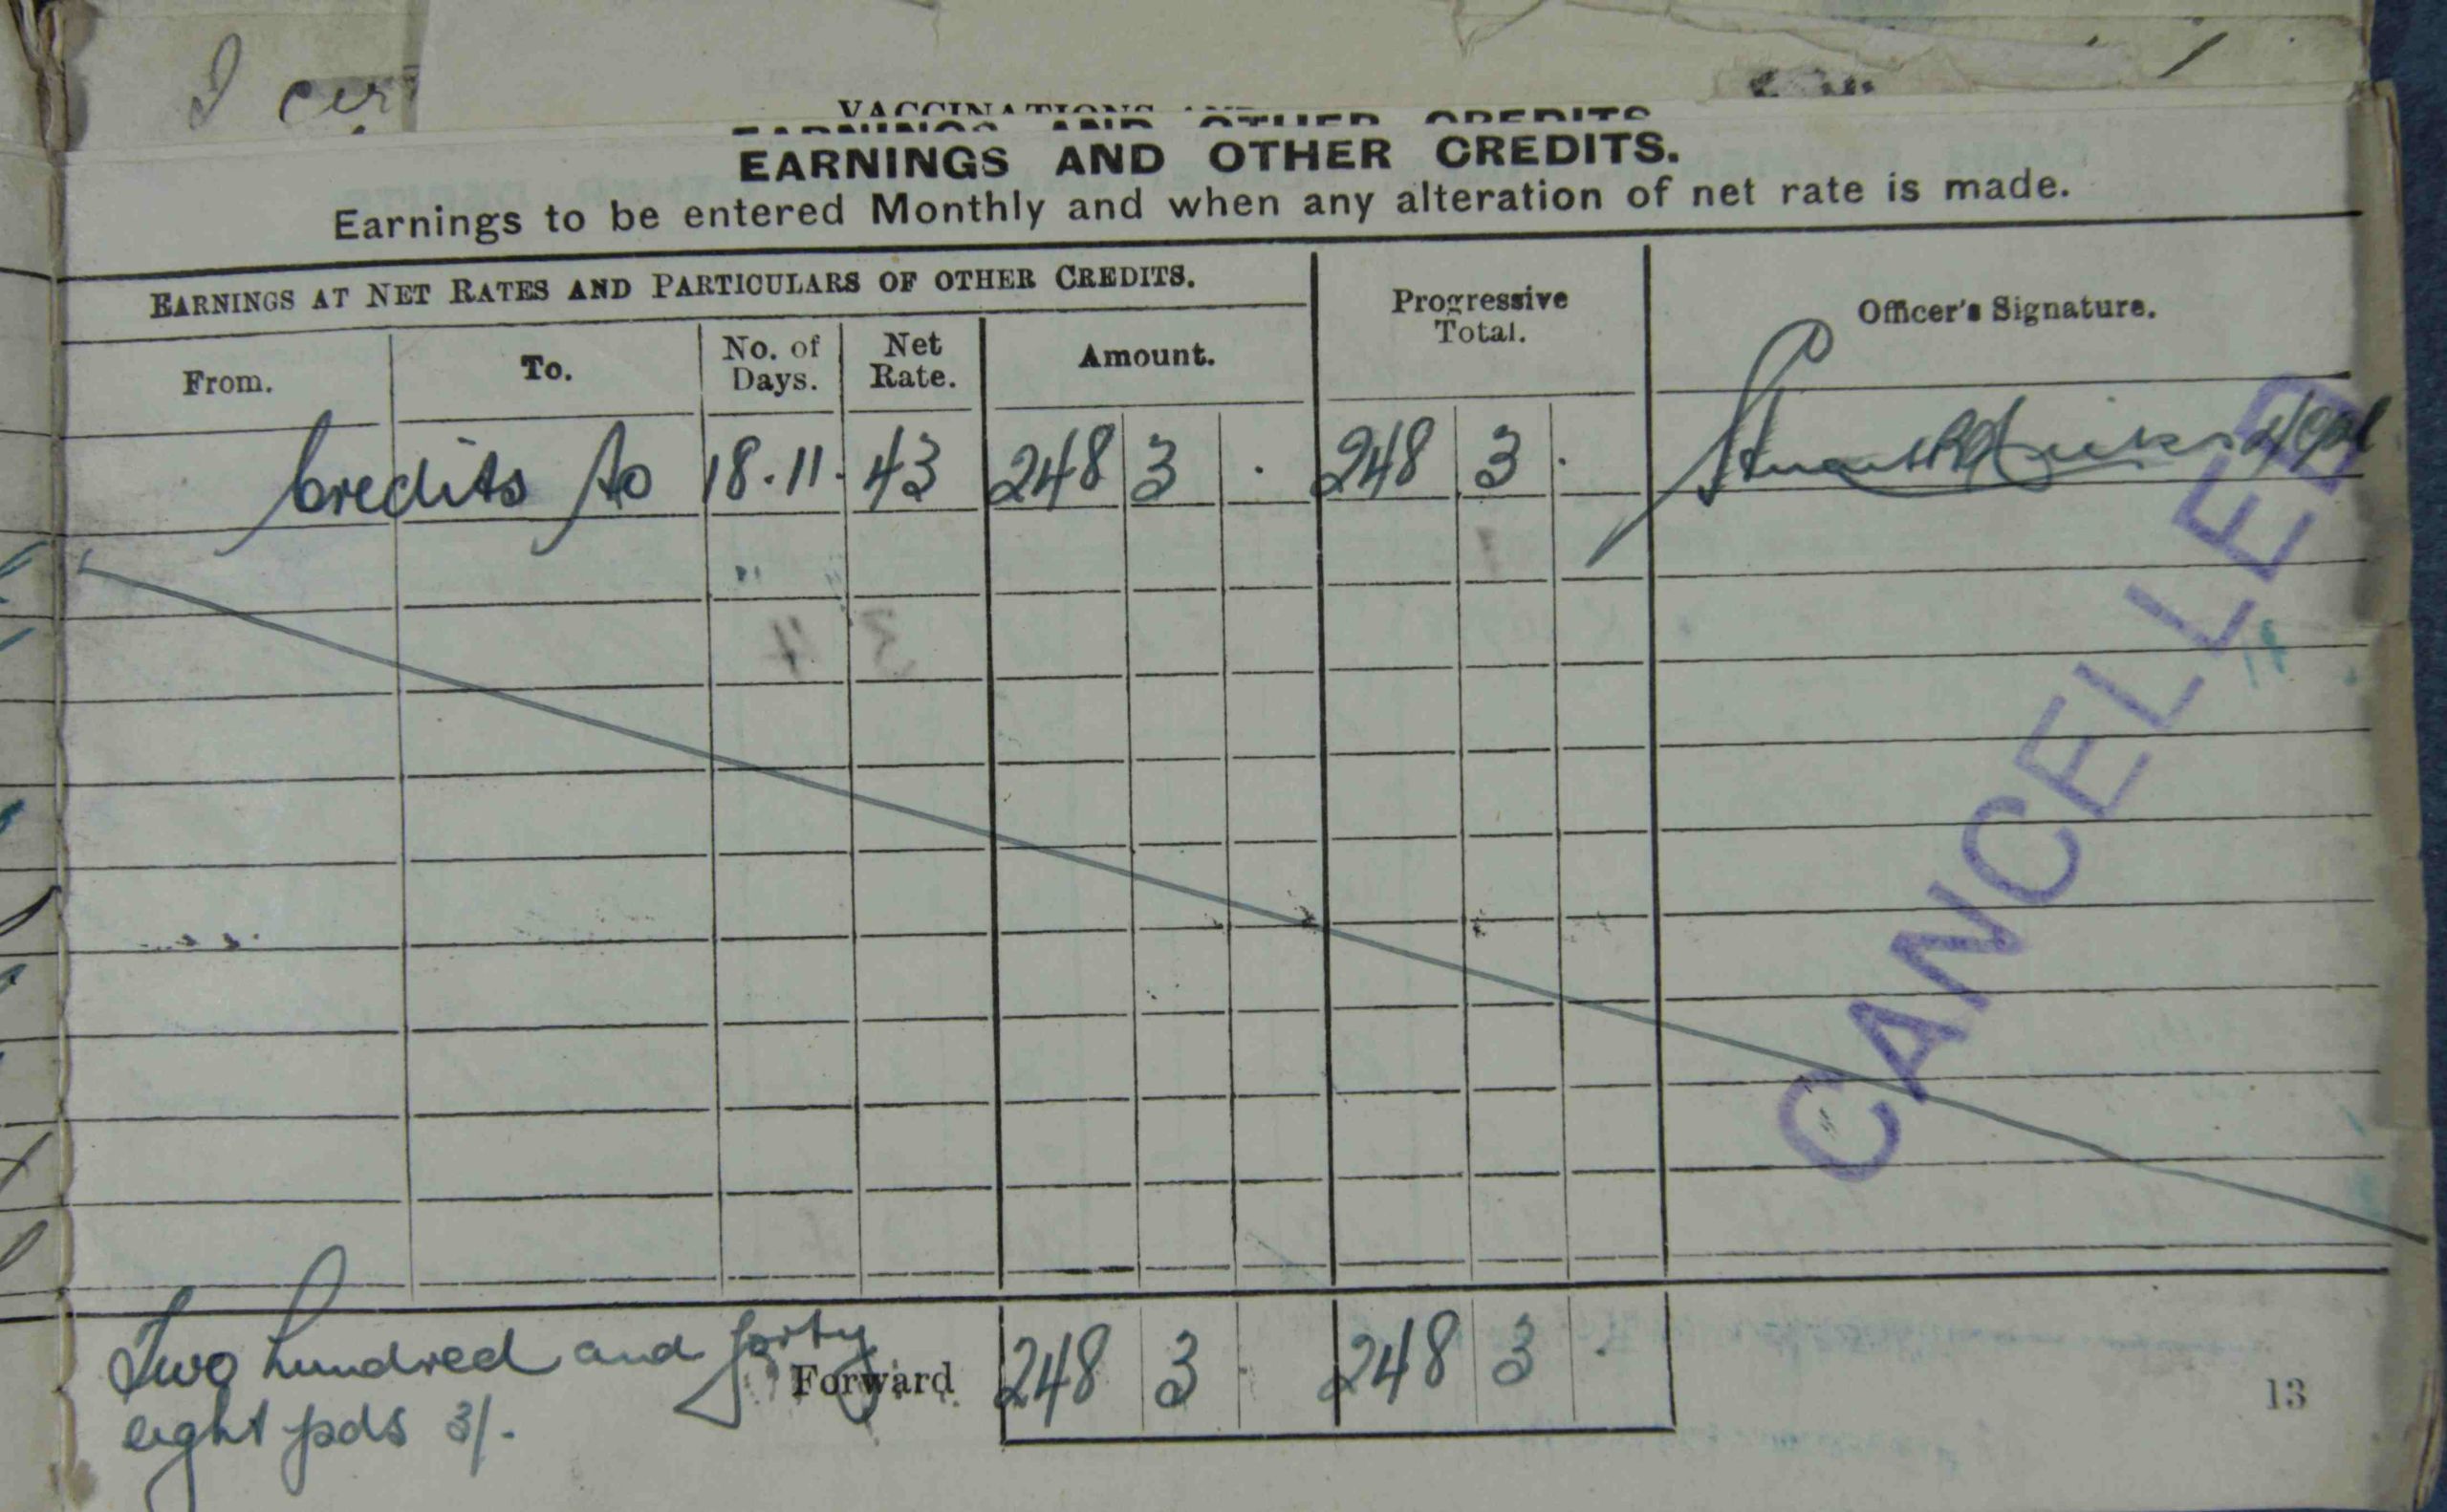 I cer
VACCINATIONS
EARNINGS AND OTHER CREDITS
EARNINGS AND OTHER CREDITS.
Earnings to be entered Monthly and when any alteration of net rate is made.
EARNINGS AT NET RATES AND PARTICULARS OF OTHER CREDITS.
Progressive Total.
Officer's Signature.
From. To. No. of Days. Net Rate. Amount.
Credits to 18.11.43 248 3 . 248 3 .
CANCELLED
Two hundred and forty
eight pds 3/-
Forward 248 3 . 248 3 .
13